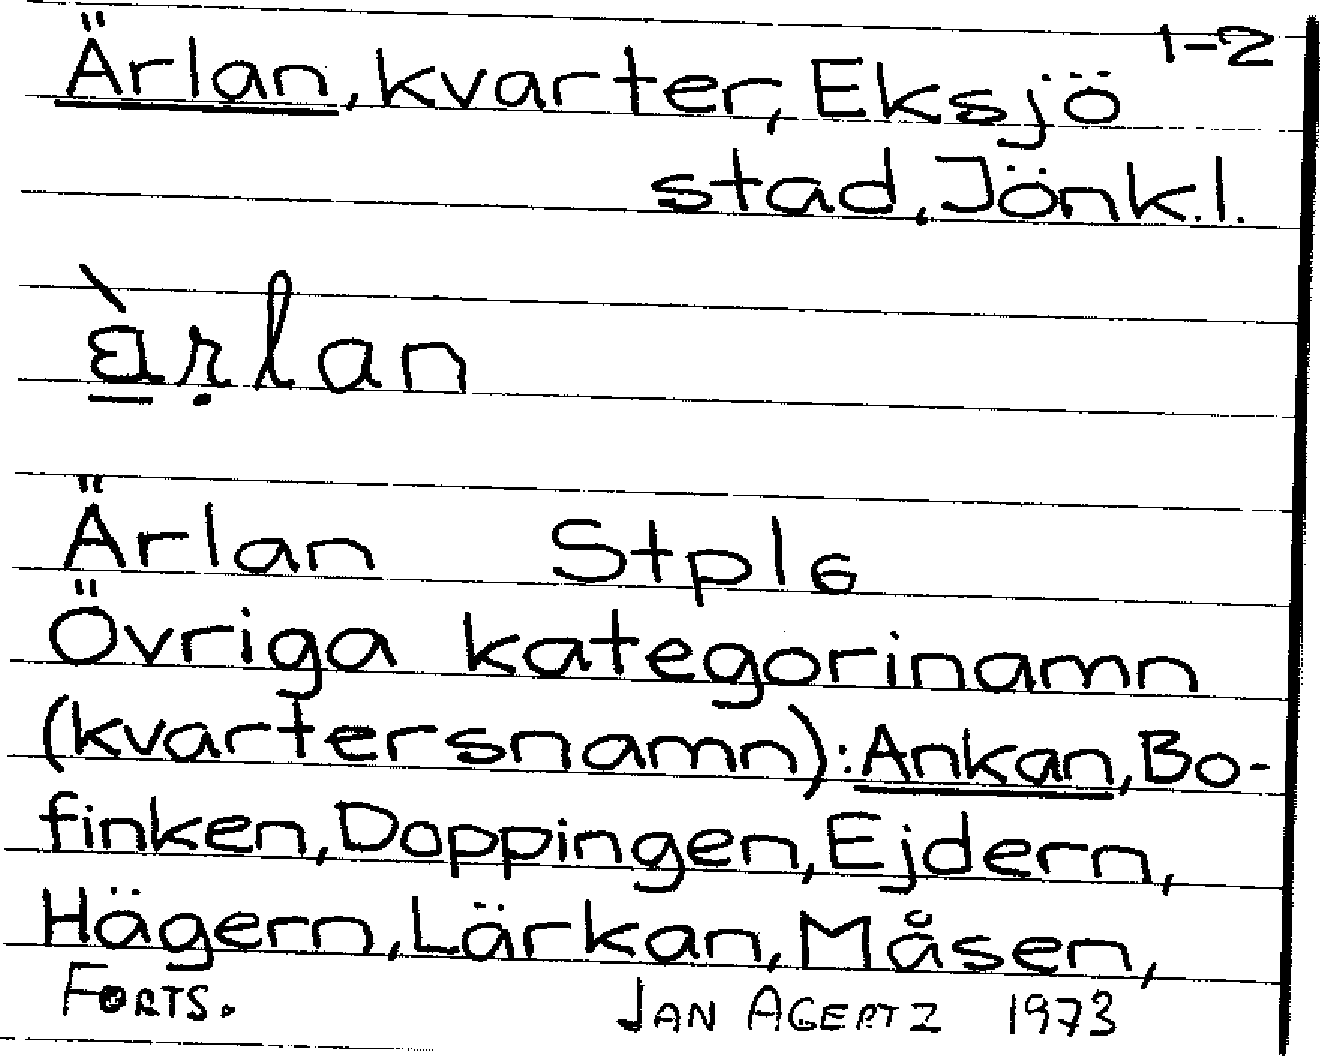 1-2
Ärlan, kvarter, Eksjö
stad, Jönk.l.
Ärlan Stpl6
Övriga kategorinamn
(kvartersnamn): Ankan, Bo-
finken, Doppingen, Ejdern,
Hägern, Lärkan, Måsen,
FORTS. JAN AGERTZ 1973